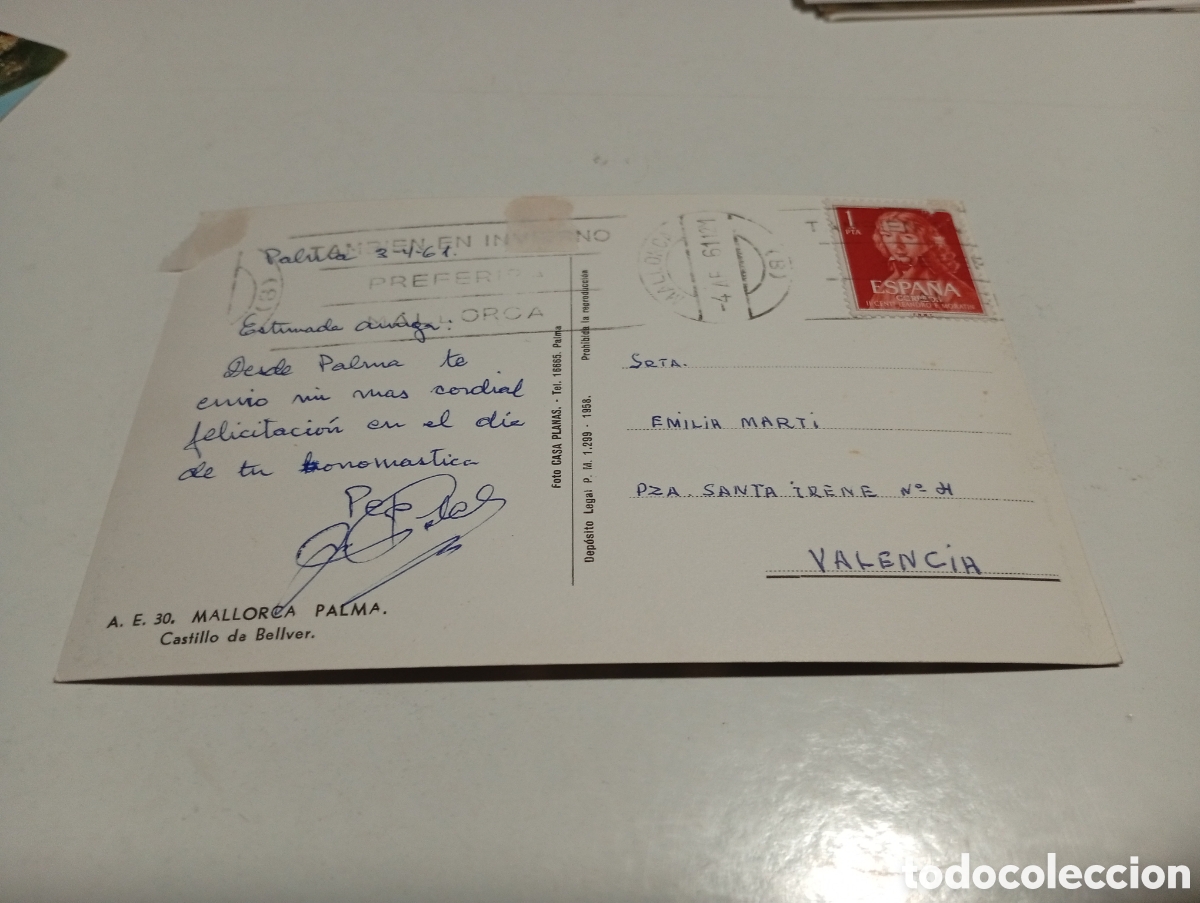 TAMBIEN EN INVIERNO
PREFERIRA
MALLORCA
(B)
MALLORCA
61
(B)
1
PTA
ESPAÑA
CORREOS
Palma 3-4-61.
Estimada amiga:
Desde Palma te
envio mi mas cordial
felicitación en el dia
de tu onomastica
Pepe
A. E. 30. MALLORCA PALMA.
Castillo de Bellver.
Foto CASA PLANAS. - Tel. 16665. Palma
Depósito Legal P. M. 1.299 - 1958. Prohibida la reproducción
SRTA.
EMILIA MARTI
PZA. SANTA IRENE Nº
VALENCIA
todocoleccion